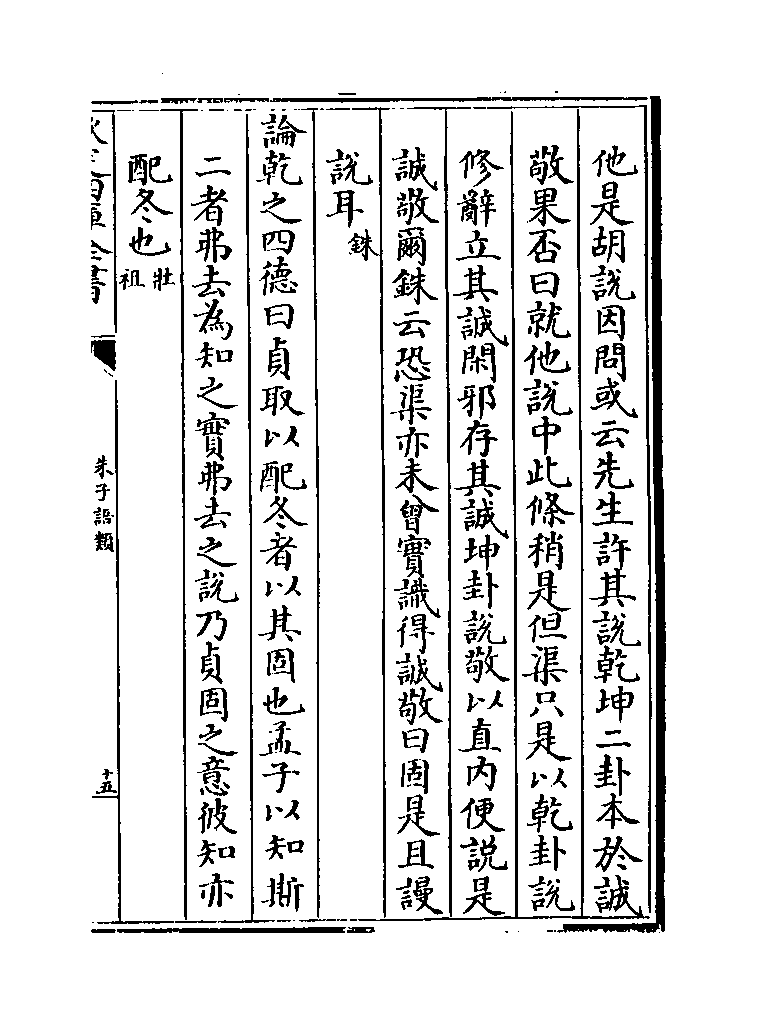 他是胡說因問或云先生許其說乾坤二卦本於誠
敬果否曰就他說中此條稍是但渠只是以乾卦說
修辭立其誠閑邪存其誠坤卦說敬以直內便説是
誠敬爾銖云恐渠亦未曾實識得誠敬曰固是且謾
説耳銖
論乾之四德曰貞取以配冬者以其固也孟子以知斯
二者弗去為知之實弗去之説乃貞固之意彼知亦
配冬也壯祖
欽定四庫全書
朱子語類
十五